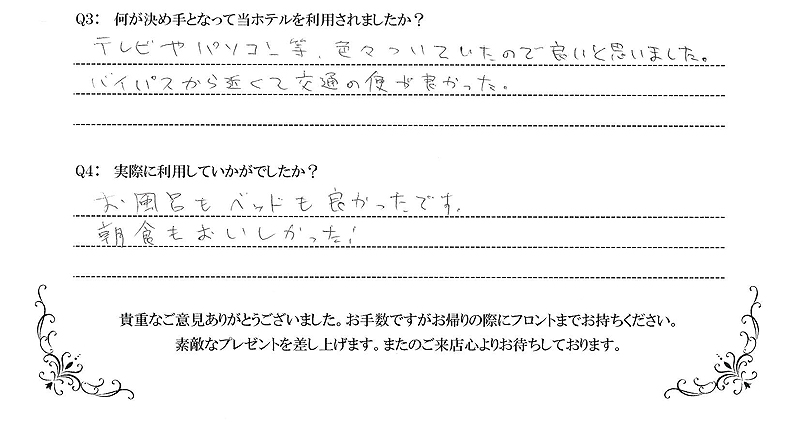 Q3: 何が決め手となって当ホテルを利用されましたか?
テレビやパソコン等、色々ついていたので良いと思いました。
バイパスから近くて交通の便が良かった。
Q4: 実際に利用していかがでしたか?
お風呂もベッドも良かったです。
朝食もおいしかった!
貴重なご意見ありがとうございました。お手数ですがお帰りの際にフロントまでお持ちください。
素敵なプレゼントを差し上げます。またのご来店心よりお待ちしております。